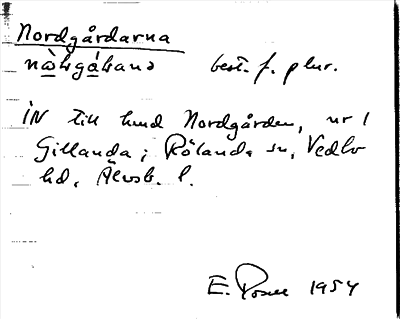 Nordgårdarna
best. f. plur.
IN till hmd Nordgården, nr 1
Gillanda i Rölanda sn, Vedbo
hd, Älvsb. l.
E. 1954